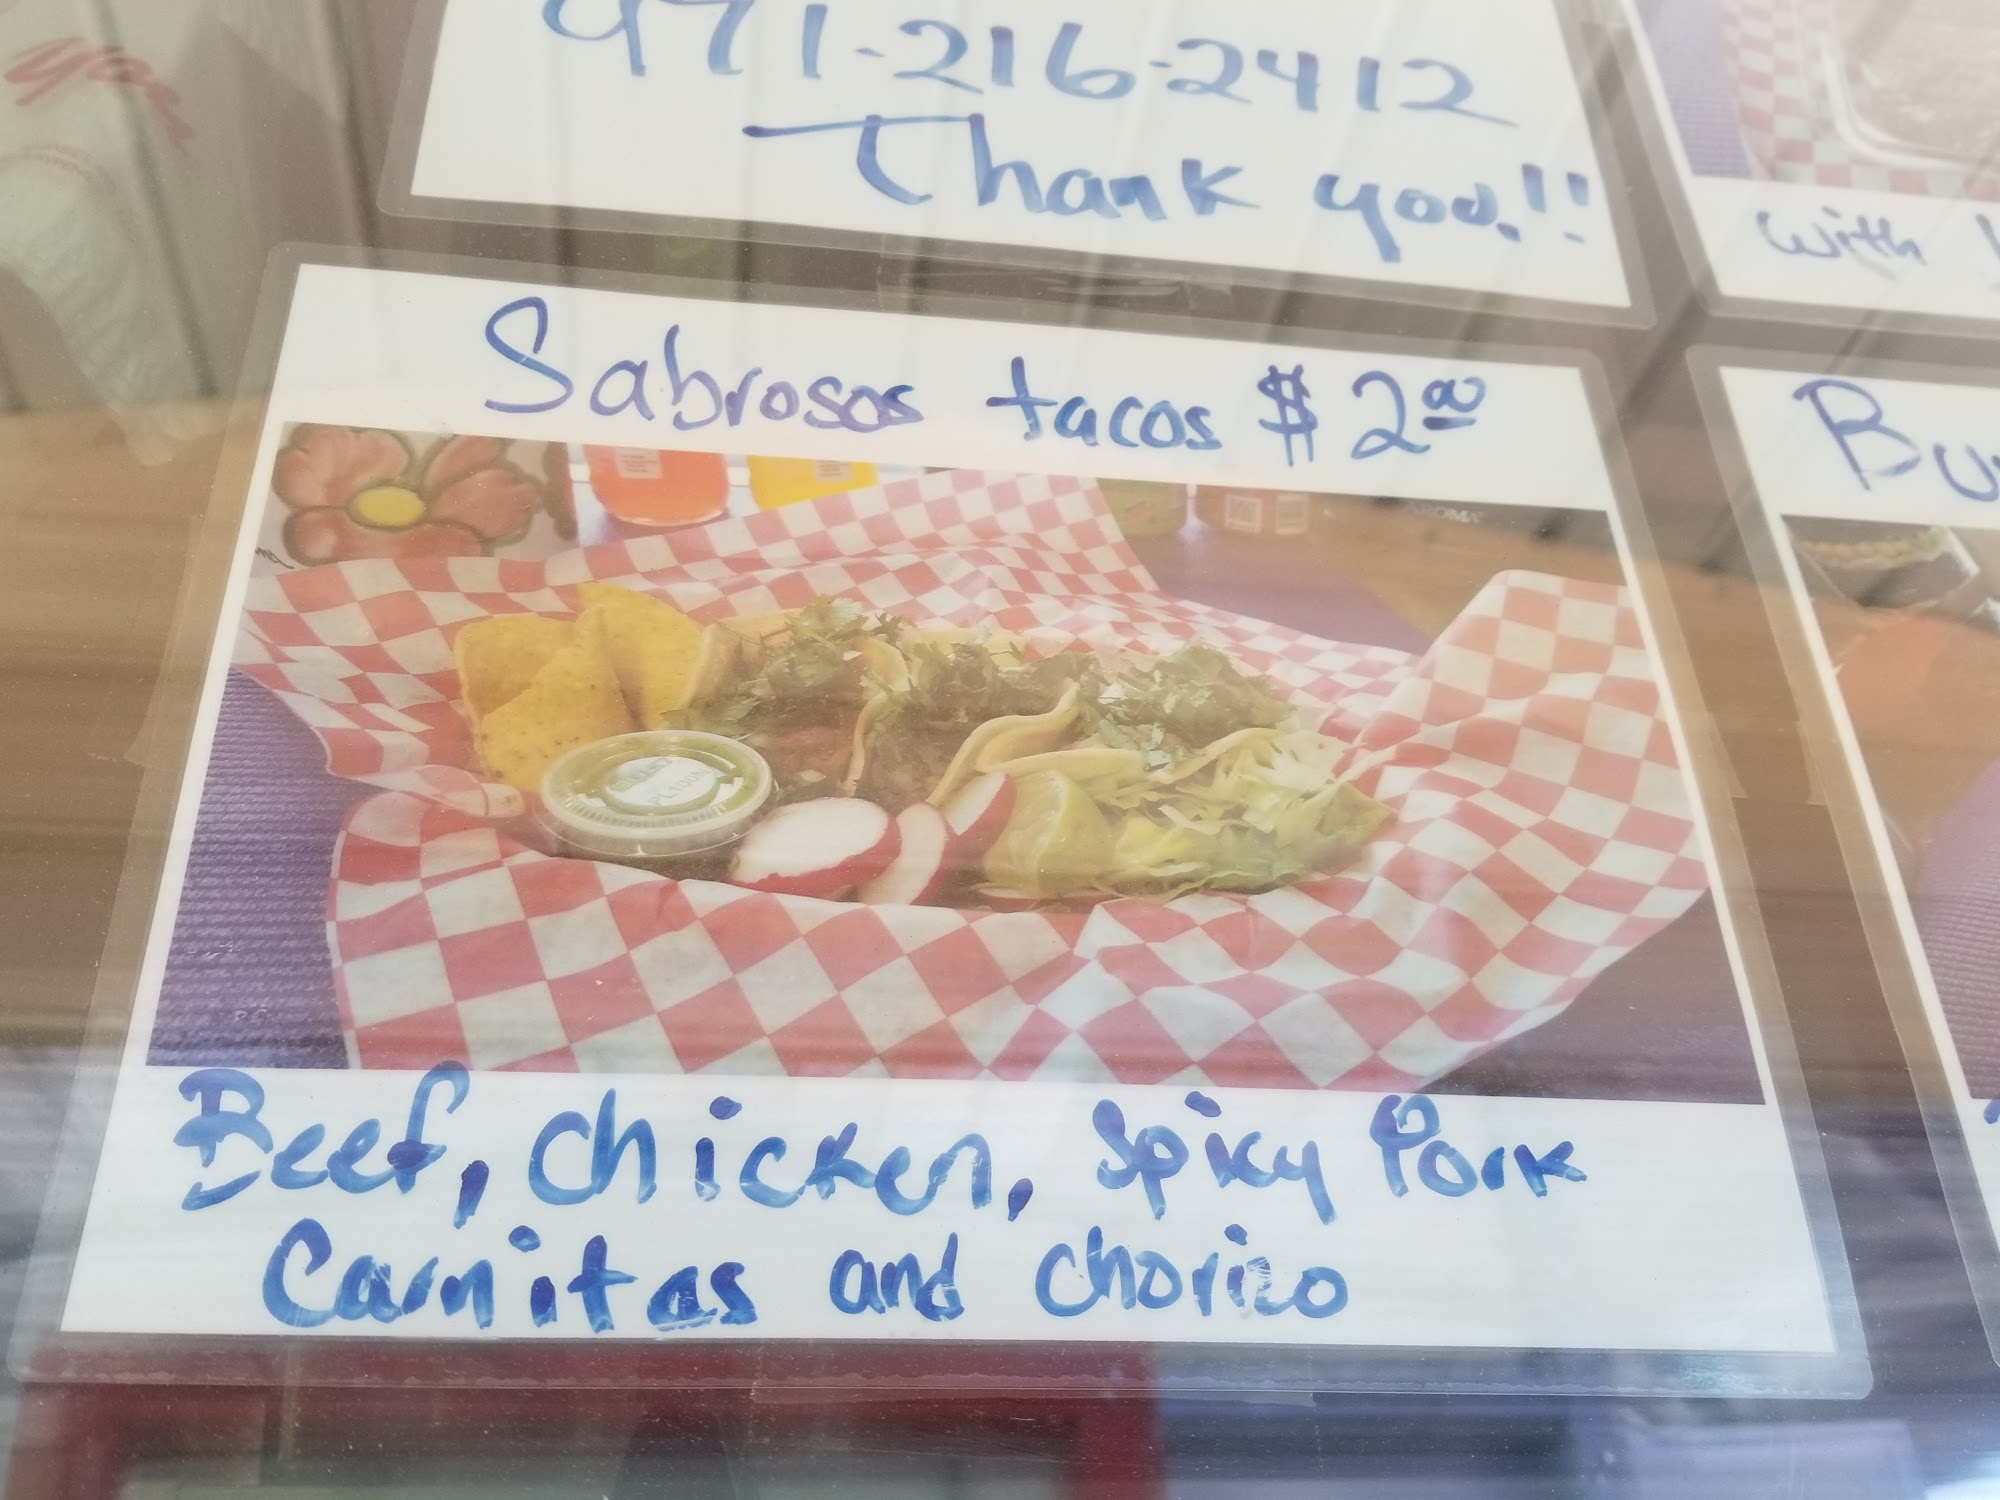 971-216-2412
Thank you!!
With
Sabrosos tacos $2.00
Beef, chicken, spicy Pork
Carnitas and chorizo